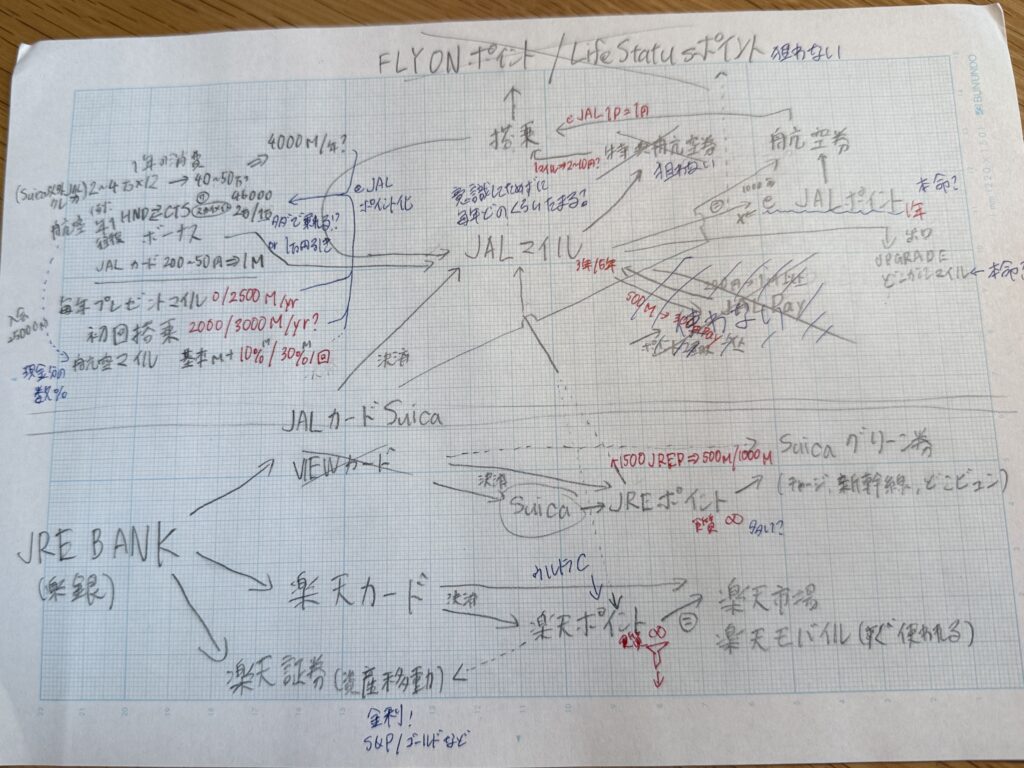 FLY ONポイント/Life Statusポイント 狙わない
e JAL 1P=1円
搭乗
特典航空券
狙わない
航空券
4000M/年?
1年の消費
2~4万×12 → 40~50万?
HND⇄CTS
ボーナス
JALカード 200~50円⇒1M
e JAL
ポイント化
or 1万円引き
毎年どのくらいたまる?
JALマイル
3年/5年
JALポイント
本命?
1年
出口
UPGRADE
どこかにマイル ← 本命?
毎年プレゼントマイル 0/2500M/yr
初回搭乗 2000/3000M/yr?
航空マイル 基本M+10%/30%/1回
現金分の
数%
JAL Pay
使わない
決済
JALカードSuica
VIEWカード
決済
1500JREP⇒500M/1000M
Suicaグリーン券
Suica → JREポイント
(チャージ,新幹線,どこビュン)
実質 ∞
JRE BANK
(楽銀)
ウルトラC
楽天カード
決済
楽天ポイント
実質 ∞
楽天市場
楽天モバイル(すぐ使われる)
楽天証券(資産移動)
金利!
S&P/ゴールドなど